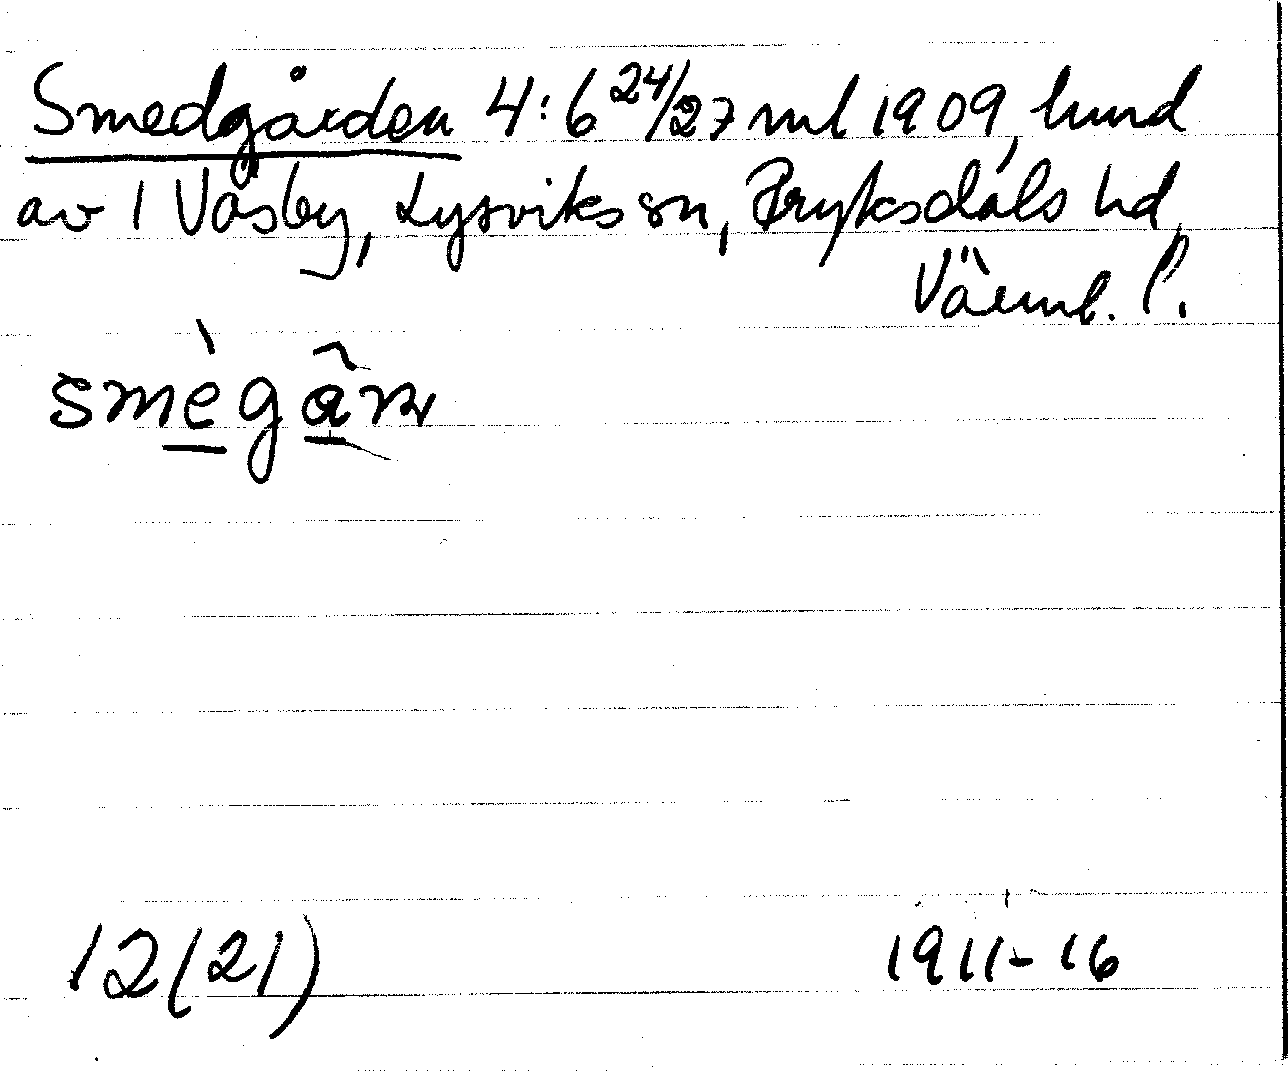 Smedgården 4:6 24/27 mtl 1909, hmd
av 1 Väsby, Lysviks sn, Fryksdals hd,
Värml. l.
smègâṛṇ
12(21) 1911-16